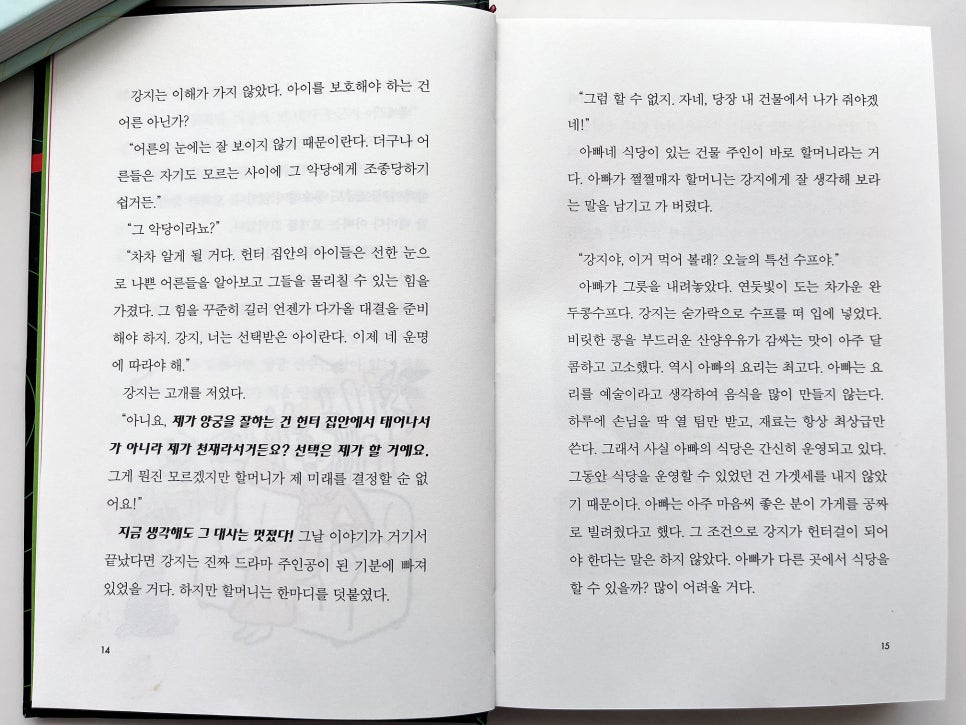 강지는 이해가 가지 않았다. 아이를 보호해야 하는 건
어른 아닌가?
“어른의 눈에는 잘 보이지 않기 때문이란다. 더구나 어
른들은 자기도 모르는 사이에 그 악당에게 조종당하기
쉽거든.”
“그 악당이라뇨?”
“차차 알게 될 거다. 헌터 집안의 아이들은 선한 눈으
로 나쁜 어른들을 알아보고 그들을 물리칠 수 있는 힘을
가졌다. 그 힘을 꾸준히 길러 언젠가 다가올 대결을 준비
해야 하지. 강지, 너는 선택받은 아이란다. 이제 네 운명
에 따라야 해.”
강지는 고개를 저었다.
“아니요, 제가 양궁을 잘하는 건 헌터 집안에서 태어나서
가 아니라 제가 천재라서거든요? 선택은 제가 할 거예요.
그게 뭔진 모르겠지만 할머니가 제 미래를 결정할 순 없
어요!”
지금 생각해도 그 대사는 멋졌다! 그날 이야기가 거기서
끝났다면 강지는 진짜 드라마 주인공이 된 기분에 빠져
있었을 거다. 하지만 할머니는 한마디를 덧붙였다.
14
“그럼 할 수 없지. 자네, 당장 내 건물에서 나가 줘야겠
네!”
아빠네 식당이 있는 건물 주인이 바로 할머니라는 거
다. 아빠가 쩔쩔매자 할머니는 강지에게 잘 생각해 보라
는 말을 남기고 가 버렸다.
“강지야, 이거 먹어 볼래? 오늘의 특선 수프야.”
아빠가 그릇을 내려놓았다. 연둣빛이 도는 차가운 완
두콩수프다. 강지는 숟가락으로 수프를 떠 입에 넣었다.
비릿한 콩을 부드러운 산양우유가 감싸는 맛이 아주 달
콤하고 고소했다. 역시 아빠의 요리는 최고다. 아빠는 요
리를 예술이라고 생각하여 음식을 많이 만들지 않는다.
하루에 손님을 딱 열 팀만 받고, 재료는 항상 최상급만
쓴다. 그래서 사실 아빠의 식당은 간신히 운영되고 있다.
그동안 식당을 운영할 수 있었던 건 가겟세를 내지 않았
기 때문이다. 아빠는 아주 마음씨 좋은 분이 가게를 공짜
로 빌려줬다고 했다. 그 조건으로 강지가 헌터걸이 되어
야 한다는 말은 하지 않았다. 아빠가 다른 곳에서 식당을
할 수 있을까? 많이 어려울 거다.
15